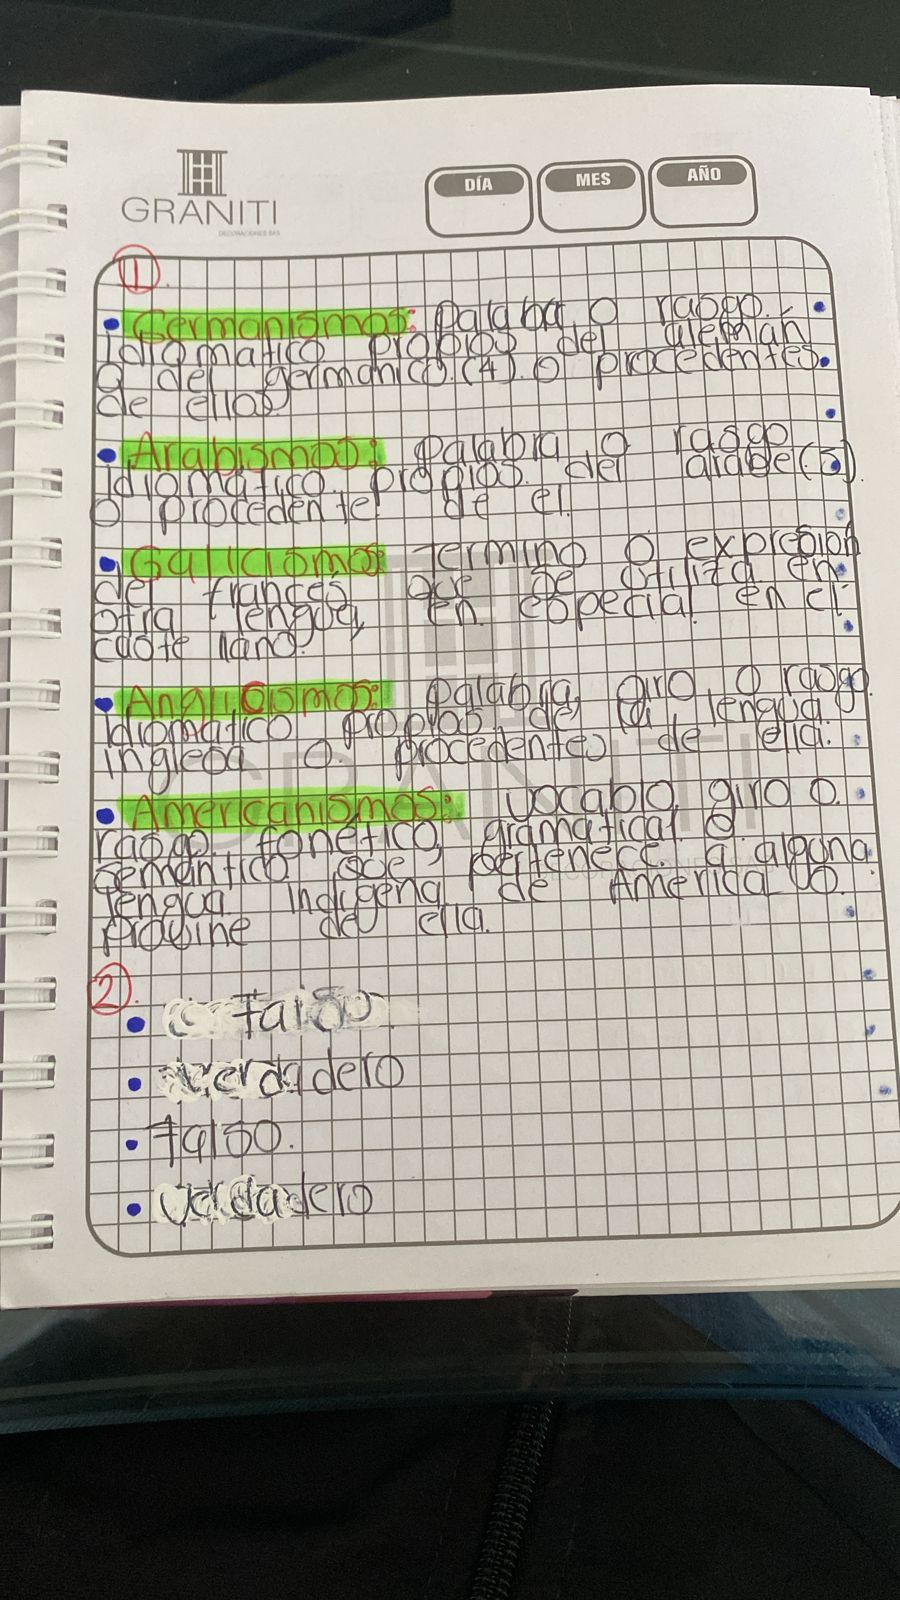 GRANITI
DECORACIONES SAS
DÍA MES AÑO
1
• Germanismos: Palabra o rasgo
idiomatico propios del alemán
o del germanico (4) o procedentes
de ellos
• Arabismos: palabra o rasgo
idiomático propios del arabe (5)
o procedente de el.
• Galicismos: termino o expresion
del frances que se utiliza en
otra lengua, en especial en el
castellano.
• Anglicismos: palabra, giro o rasgo
idiomatico propios de la lengua
inglesa o procedentes de ella.
• Americanismos: vocablo, giro o
rasgo fonético, gramatical o
semántico que pertenece a alguna
lengua indigena de America o
provine de ella.
2.
• Falso.
• verdadero
• Falso.
• verdadero
GRANITI